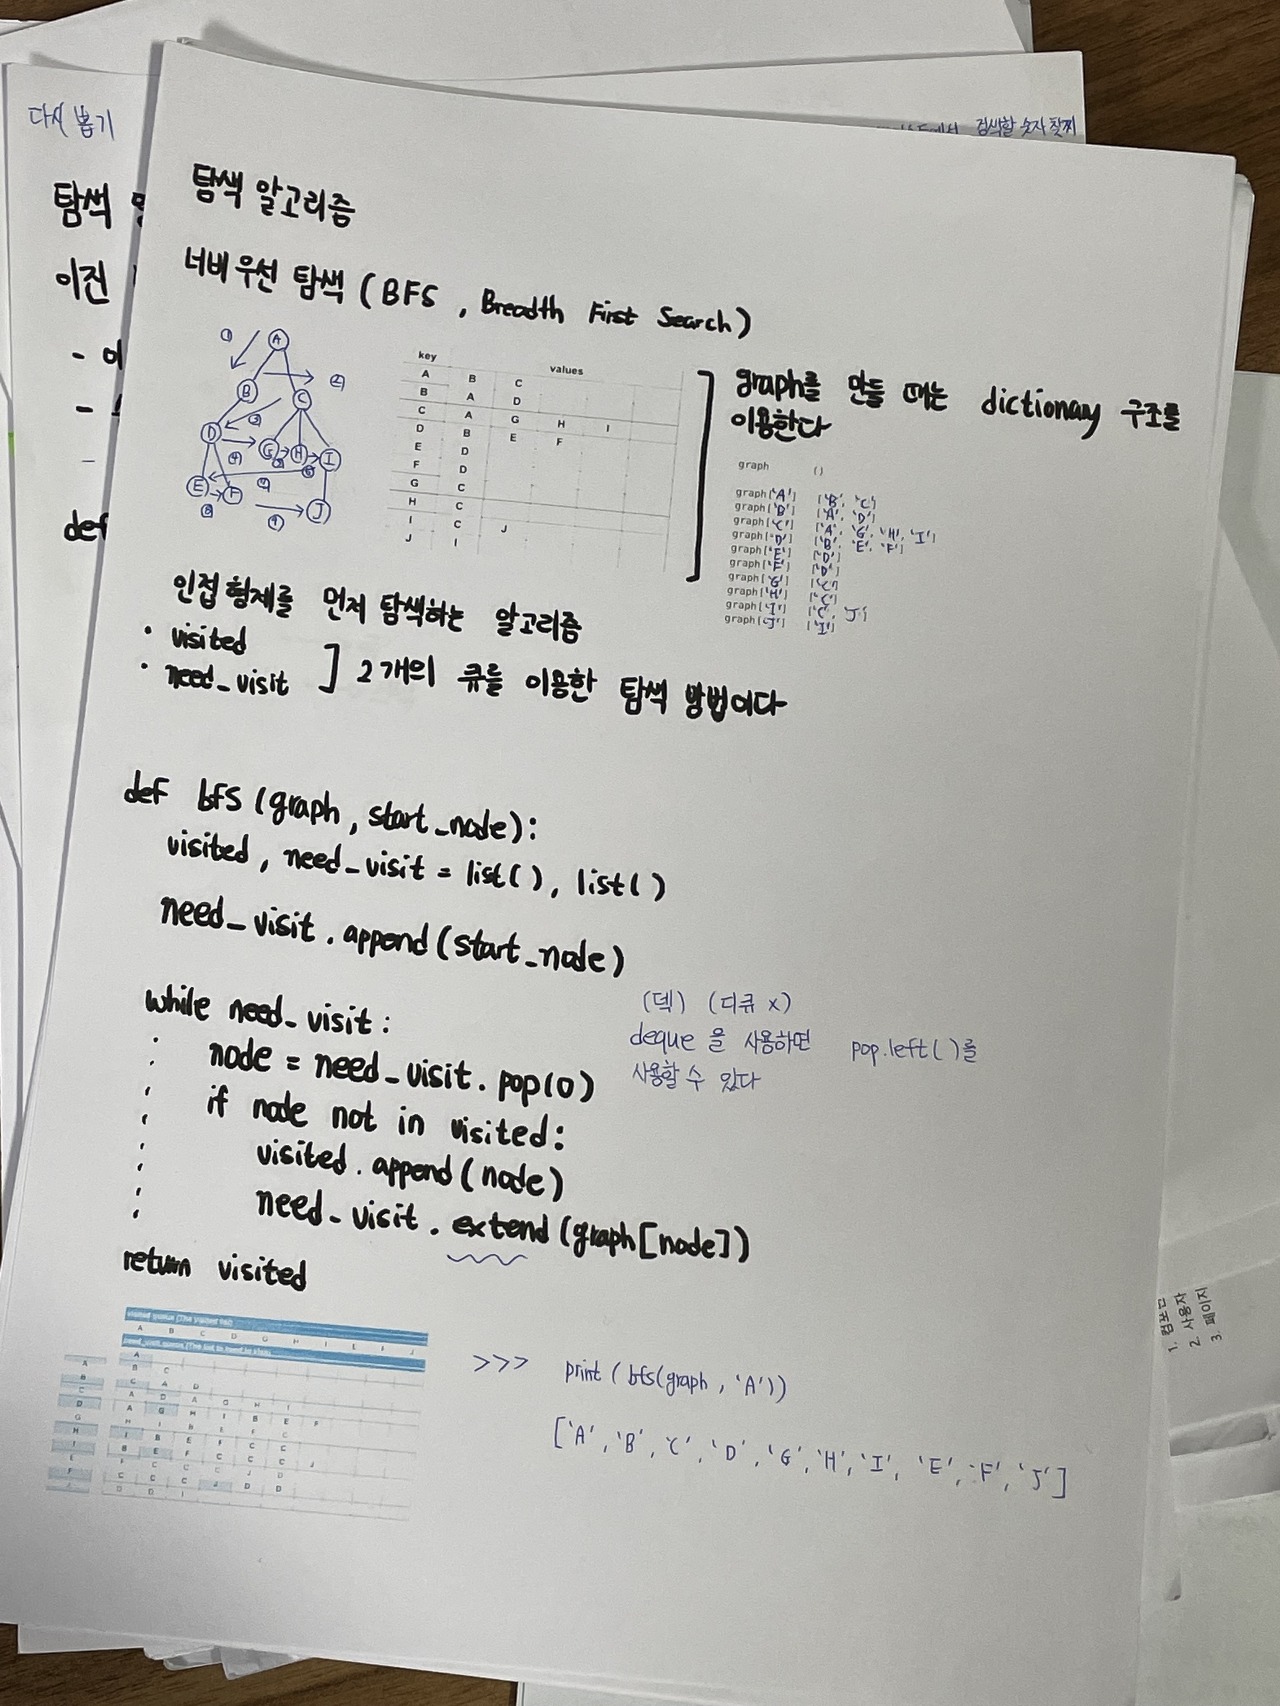 다시 뽑기
검색할 숫자 찾찌
탐색
이진
def
탐색 알고리즘
너비 우선 탐색 (BFS , Breadth First Search)
① A
B ②
C
③
D G H I
④ ⑤ ⑥
⑦
E F J
⑧ ⑨
key values
A B C
B A D
C A G H I
D B E F
E D
F D
G C
H C
I C J
J I
graph를 만들 때는 dictionary 구조를
이용한다
graph ()
graph['A'] ['B', 'C']
graph['B'] ['A', 'D']
graph['C'] ['A', 'G', 'H', 'I']
graph['D'] ['B', 'E', 'F']
graph['E'] ['D']
graph['F'] ['D']
graph['G'] ['C']
graph['H'] ['C']
graph['I'] ['C', 'J']
graph['J'] ['I']
인접 형제를 먼저 탐색하는 알고리즘
• visited
• need_visit ] 2개의 큐를 이용한 탐색 방법이다
def bfs (graph, start_node):
visited, need_visit = list(), list()
need_visit.append(start_node)
while need_visit:
node = need_visit.pop(0)
if node not in visited:
visited.append(node)
need_visit.extend(graph[node])
return visited
(덱) (디큐 x)
deque 을 사용하면 pop.left()를
사용할 수 있다
A B C D G H I E F J
>>> print (bfs(graph, 'A'))
['A', 'B', 'C', 'D', 'G', 'H', 'I', 'E', 'F', 'J']
1. 컴포넌
2. 사용자
3. 페이지